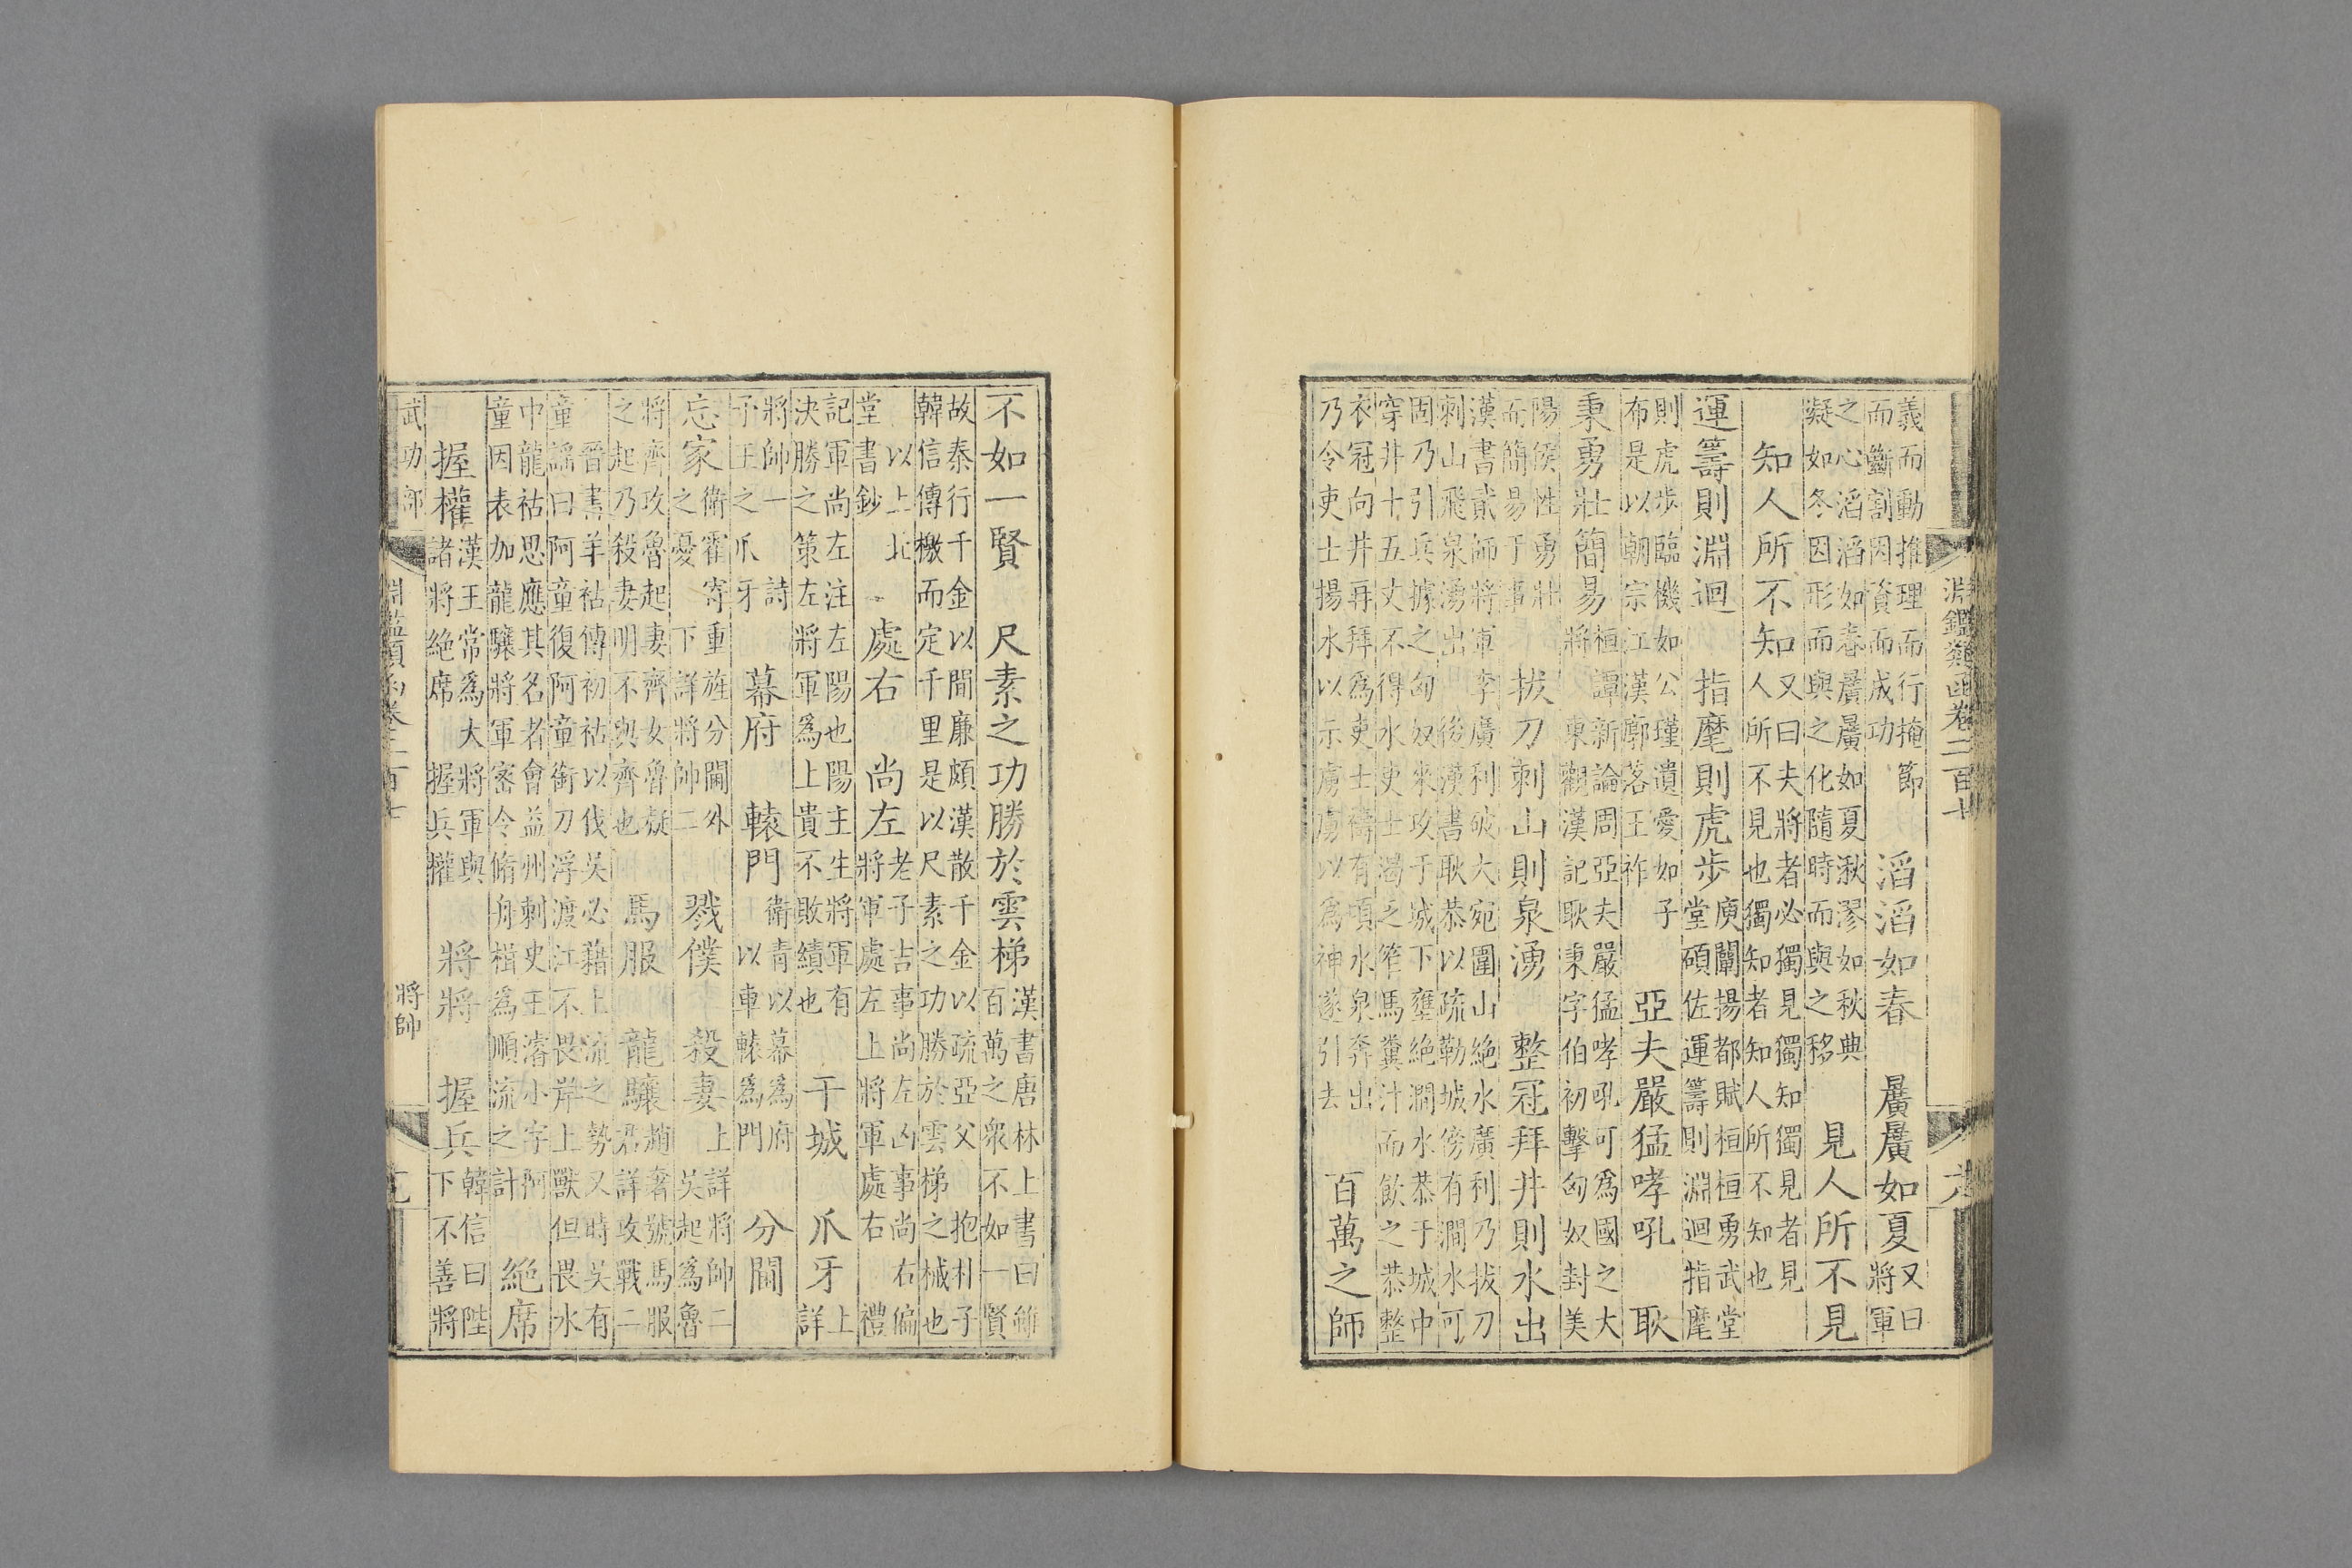 淵鑑類函卷二百七
義而動推理而行掩節
而斷割因資而成功
滔滔如春　曠曠如夏
又曰
將軍
之心滔滔如春曠曠如夏湫漻如秋典
凝如冬因形而與之化隨時而與之移
見人所不見
知人所不知
又曰夫將者必獨見獨知獨見者見
人所不見也獨知者知人所不知也
運籌則淵迴　指麾則虎步
庾闡揚都賦桓桓勇武堂
堂碩佐運籌則淵迴指麾
則虎步臨機如公瑾遺愛如子
布是以朝宗江漢廓落王祚
亞夫嚴猛哮吼　耿
秉勇壯簡易
桓譚新論周亞夫嚴猛哮吼可爲國之大
將　東觀漢記耿秉字伯初擊匈奴封美
陽侯性勇壯
而簡易于事
拔刀刺山則泉湧　整冠拜井則水出
漢書貳師將軍李廣利破大宛圍山絶水廣利乃拔刀
刺山飛泉湧出　後漢書耿恭以疏勒城傍有澗水可
固乃引兵據之匈奴來攻于城下壅絶澗水恭于城中
穿井十五丈不得水吏士渴乏笮馬糞汁而飲之恭整
衣冠向井再拜爲吏士禱有頃水泉奔出
乃令吏士揚水以示虜虜以爲神遂引去
百萬之師
不如一賢　尺素之功勝於雲梯
漢書唐林上書曰雖
百萬之衆不如一賢
故秦行千金以間廉頗漢散千金以疏亞父　抱朴子
韓信傳檄而定千里是以尺素之功勝於雲梯之械也
以上北
堂書鈔
處右　尚左
老子吉事尚左凶事尚右偏
將軍處左上將軍處右　禮
記軍尚左注左陽也陽主生將軍有
決勝之策左將軍爲上貴不敗績也
干城　爪牙
上
詳
將帥一　詩
予王之爪牙
幕府　轅門
衛青以幕爲府
以車轅爲門
分閫
忘家
衛霍寄重旌分閫外
之憂　下詳將帥二
戮僕　殺妻
上詳將帥二
吳起爲魯
將齊攻魯起妻齊女魯疑
之起乃殺妻明不與齊也
馬服　龍驤
趙奢號馬服
君詳攻戰二
晉書羊祜傳初祜以伐吳必藉上流之勢又時吳有
童謡曰阿童復阿童銜刀浮渡江不畏岸上獸但畏水
中龍祜思應其名者會益州刺史王濬小字阿
童因表加龍驤將軍密令脩舟楫爲順流之計
絶席
握權
漢王常爲大將軍與
諸將絶席　握兵權
將將　握兵
韓信曰陛
下不善將
武功部
淵鑑類函卷二百七
將帥